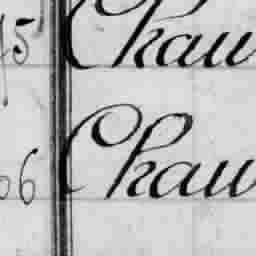 75 Chau
66 Chau